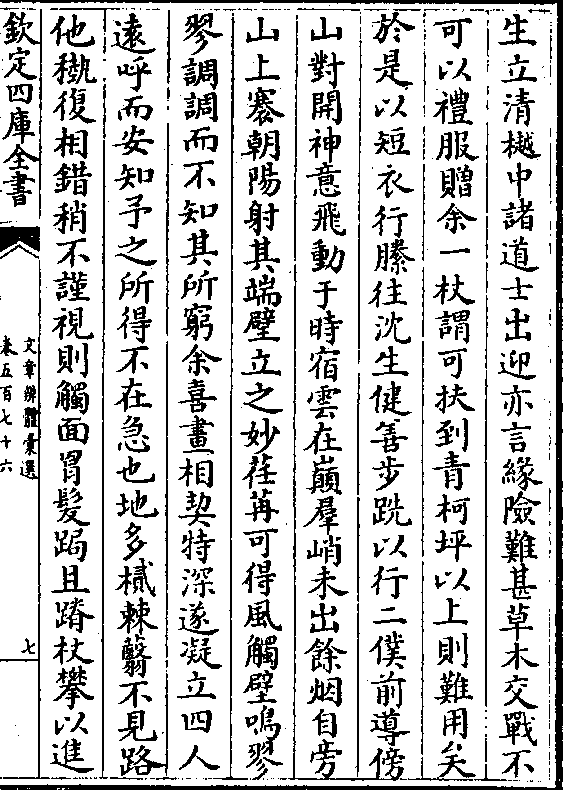 生立清樾中諸道士出迎亦言緣險難甚草木交戰不
可以禮服贈余一杖謂可扶到青柯坪以上則難用矣
於是以短衣行縢往沈生健善步跣以行二僕前導傍
山對開神意飛動于時宿雲在巔羣峭未出餘烟自旁
山上褰朝陽射其端壁立之妙荏苒可得風觸壁鳴翏
翏調調而不知其所窮余喜畫相契特深遂凝立四人
遠呼而安知予之所得不在急也地多樲棘翳不見路
他槸復相錯稍不謹視則觸面罥髮跼且蹐杖攀以進
欽定四庫全書
文章辨體彙選
卷五百七十六
七